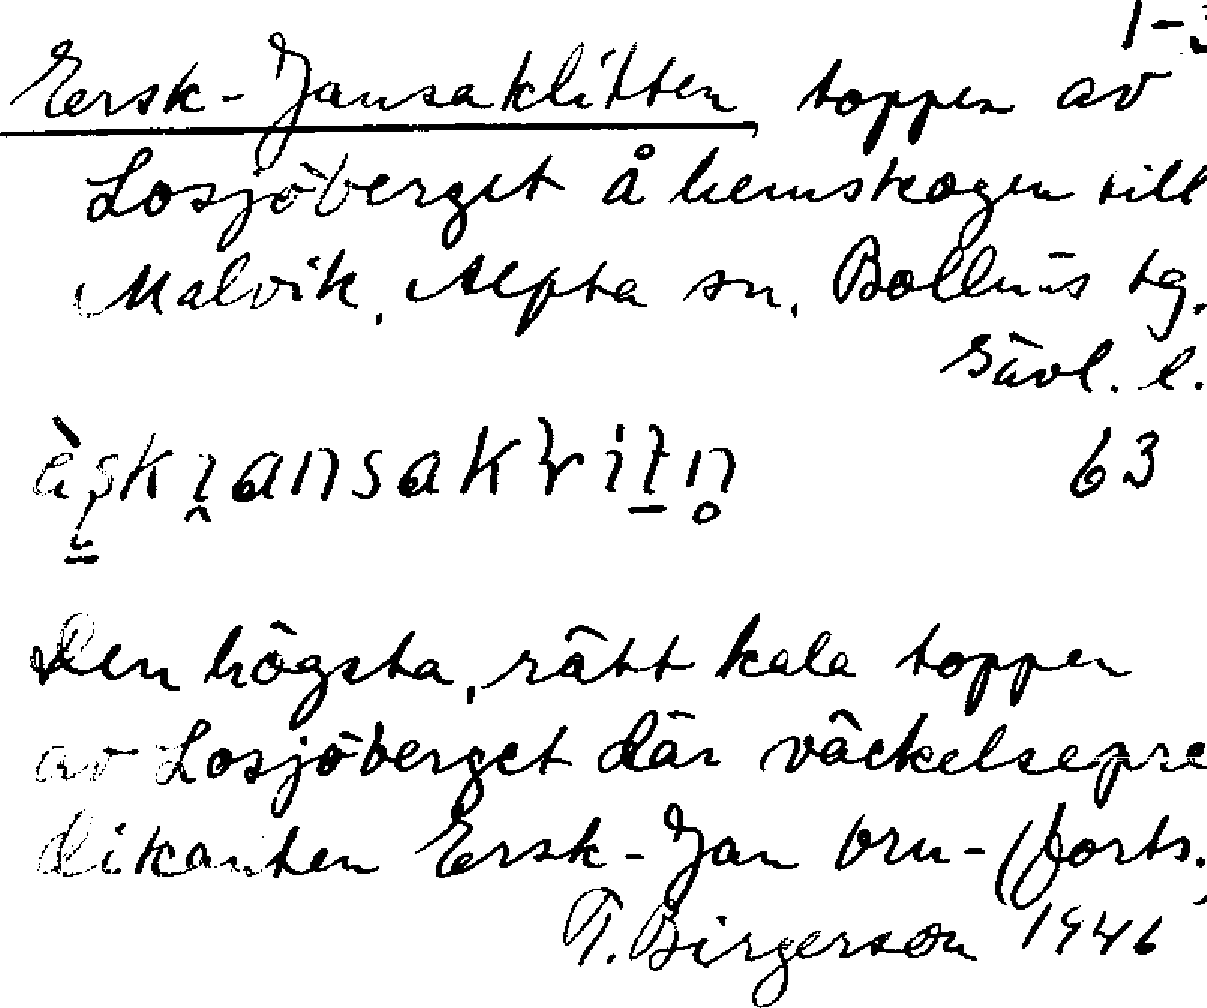 1-3
Ersk-Jansaklitten toppen av
Losjöberget å hemskogen till
Malvik, Alfta sn, Bollnäs tg.
Gävl. l.
63
Den högsta, rätt kala toppen
av Losjöberget där väckelsepre
dikanten Ersk-Jan bru- (forts.)
T. Birgerson 1946